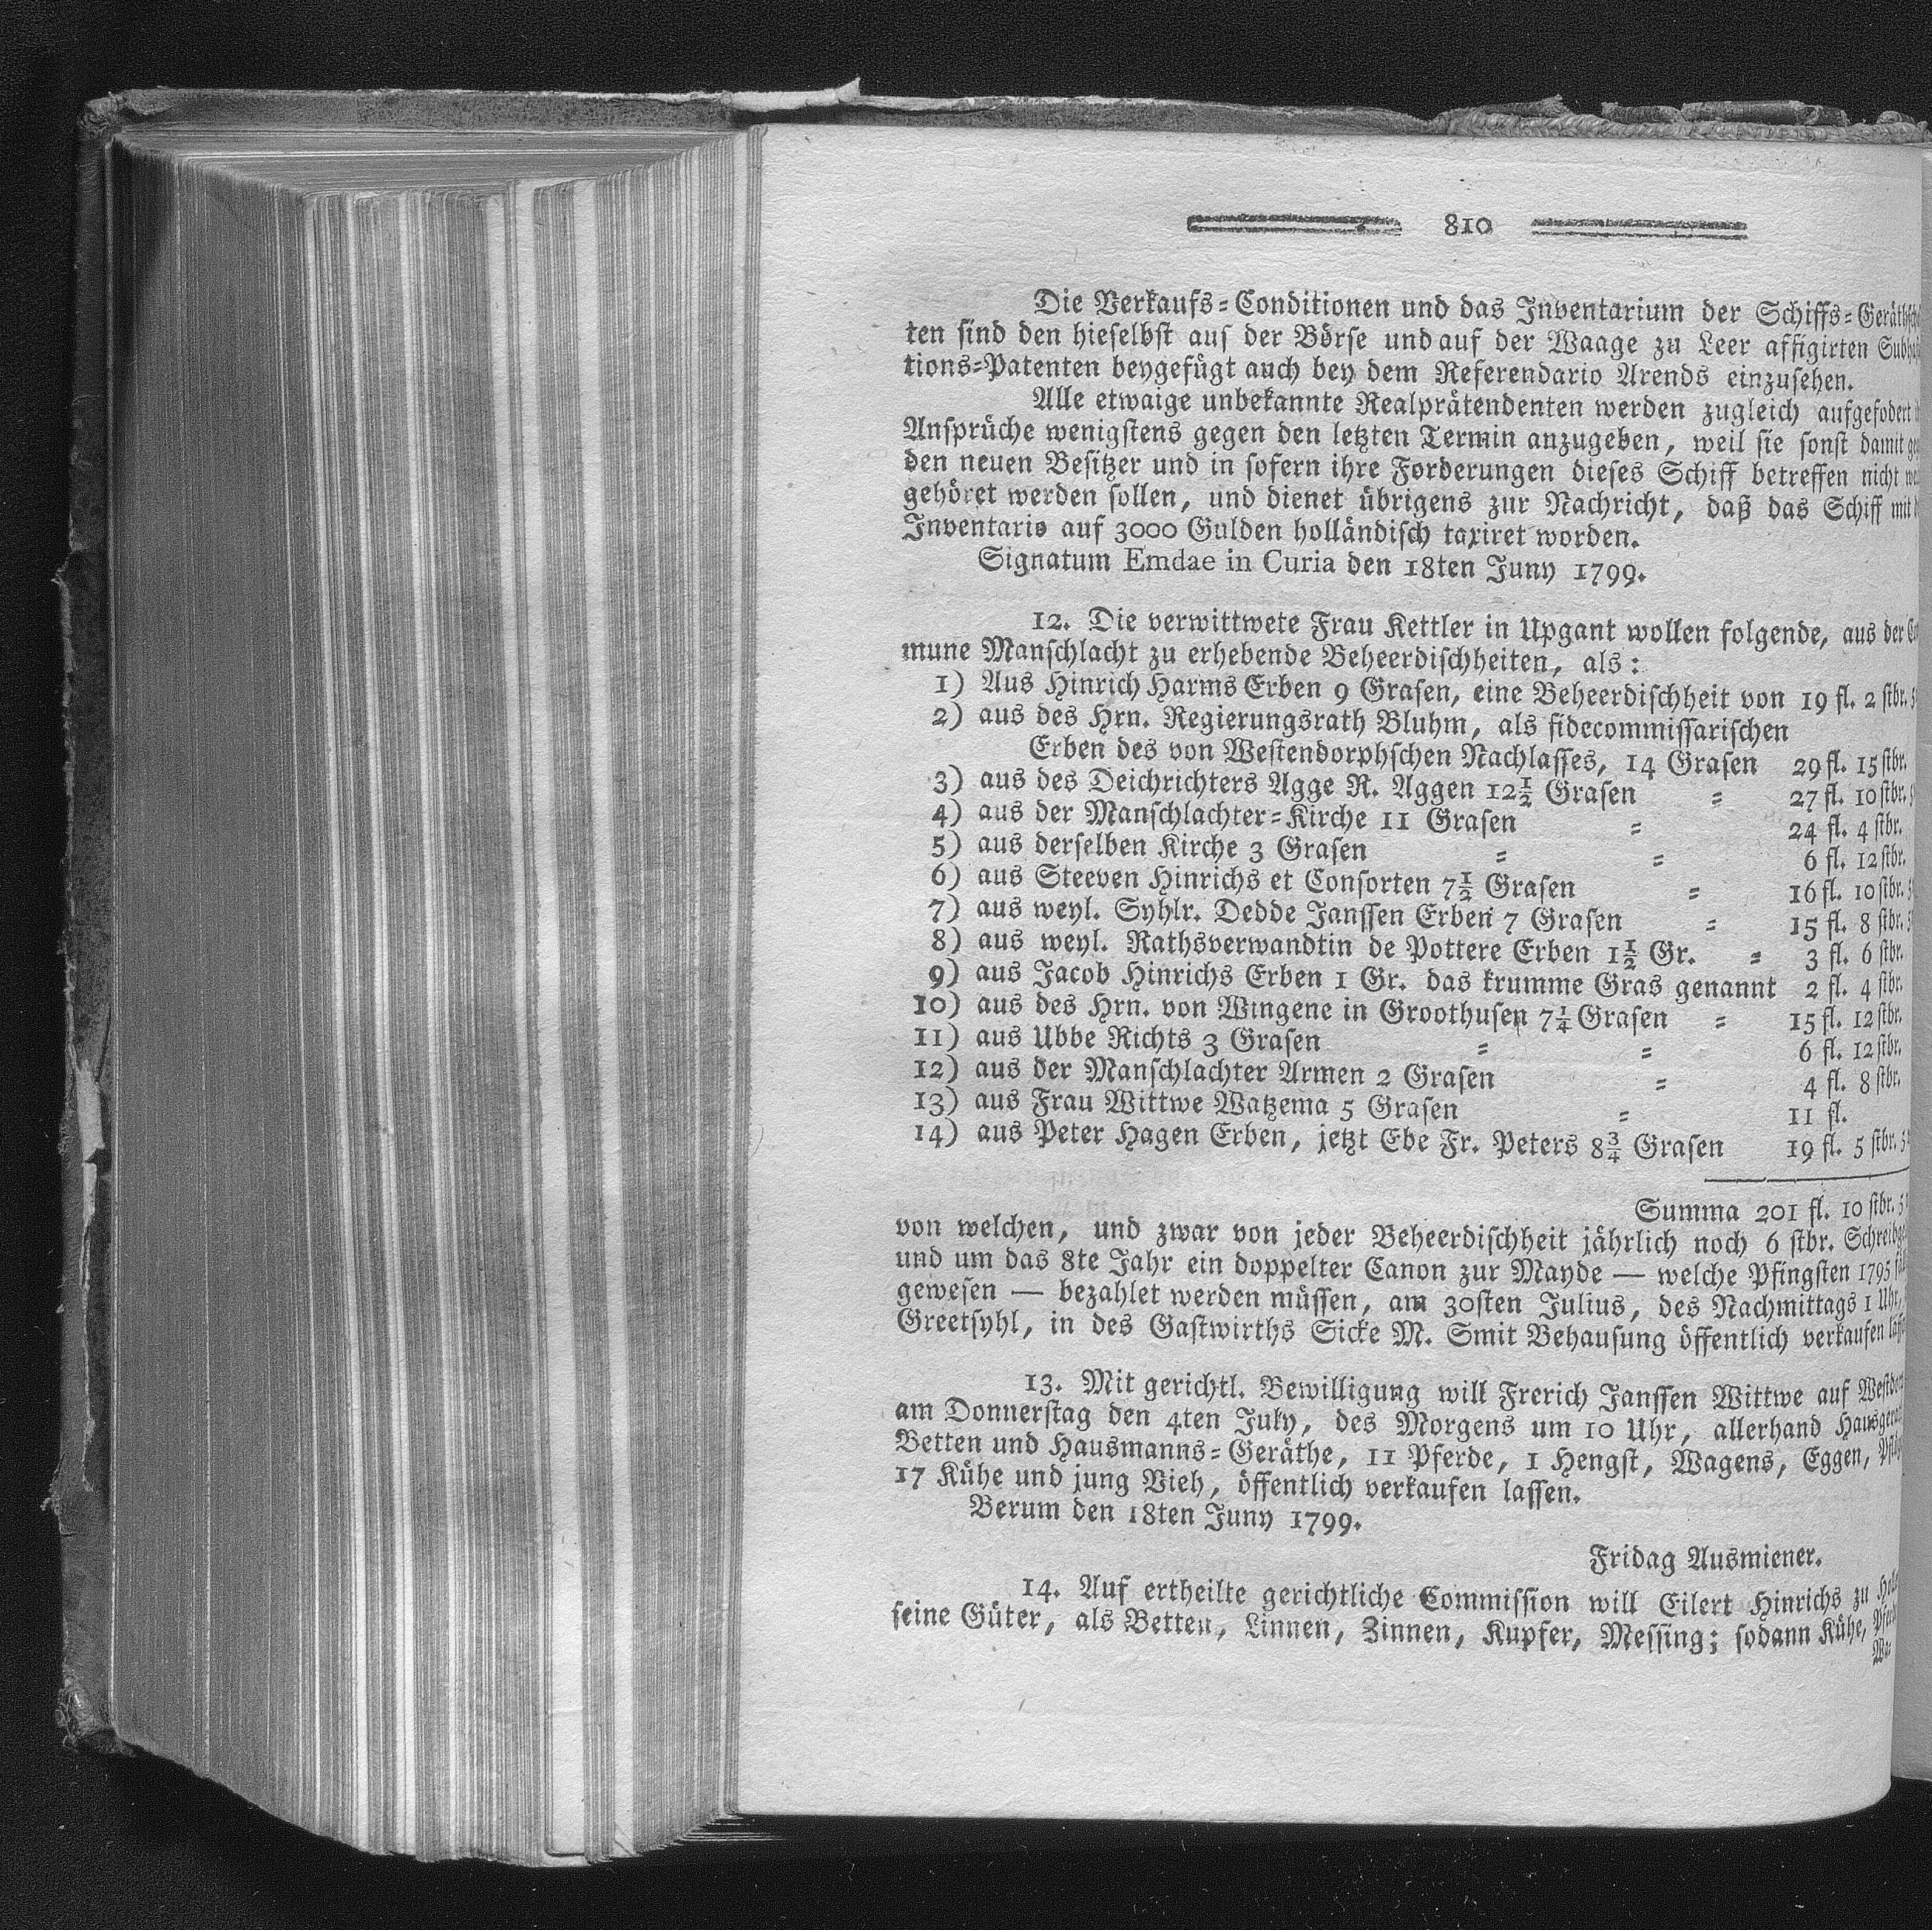 810
Die Verkaufs=Conditionen und das Inventarium der Schiffs=Geräthsch
ten sind den hieselbst auf der Börse und auf der Waage zu Leer affigirten Subha
tions=Patenten beygefügt auch bey dem Referendario Arends einzusehen.
Alle etwaige unbekannte Realprätendenten werden zugleich aufgefodert
Ansprüche wenigstens gegen den letzten Termin anzugeben, weil sie sonst damit ge
den neuen Besitzer und in sofern ihre Forderungen dieses Schiff betreffen nicht
gehöret werden sollen, und dienet übrigens zur Nachricht, daß das Schiff mit
Inventario auf 3000 Gulden holländisch taxiret worden.
Signatum Emdae in Curia den 18ten Juny 1799.
12. Die verwittwete Frau Kettler in Upgant wollen folgende, aus der
mune Manschlacht zu erhebende Beheerdischheiten, als:
1) Aus Hinrich Harms Erben 9 Grasen, eine Beheerdischheit von 19 fl. 2 stbr.
2) aus des Hrn. Regierungsrath Bluhm, als fidecommissarischen
Erben des von Westendorphschen Nachlasses, 14 Grasen 29 fl. 15 stbr.
3) aus des Deichrichters Agge R. Aggen 12½ Grasen = 27 fl. 10 stbr.
4) aus der Manschlachter=Kirche 11 Grasen = 24 fl. 4 stbr.
5) aus derselben Kirche 3 Grasen = = 6 fl. 12 stbr.
6) aus Steeven Hinrichs et Consorten 7½ Grasen = 16 fl. 10 stbr.
7) aus weyl. Syhlr. Dedde Janssen Erben 7 Grasen = 15 fl. 8 stbr.
8) aus weyl. Rathsverwandtin de Pottere Erben 1½ Gr. = 3 fl. 6 stbr.
9) aus Jacob Hinrichs Erben 1 Gr. das krumme Gras genannt 2 fl. 4 stbr.
10) aus des Hrn. von Wingene in Groothusen 7¼ Grasen = 15 fl. 12 stbr.
11) aus Ubbe Richts 3 Grasen = = 6 fl. 12 stbr.
12) aus der Manschlachter Armen 2 Grasen = 4 fl. 8 stbr.
13) aus Frau Wittwe Watzema 5 Grasen = 11 fl.
14) aus Peter Hagen Erben, jetzt Ebe Fr. Peters 8¾ Grasen 19 fl. 5 stbr.
Summa 201 fl. 10 stbr.
von welchen, und zwar von jeder Beheerdischheit jährlich noch 6 stbr. Schreibge
und um das 8te Jahr ein doppelter Canon zur Mayde — welche Pfingsten 1795
gewesen — bezahlet werden müssen, am 30sten Julius, des Nachmittags 1 Uhr,
Greetsyhl, in des Gastwirths Sicke M. Smit Behausung öffentlich verkaufen
13. Mit gerichtl. Bewilligung will Frerich Janssen Wittwe auf
am Donnerstag den 4ten July, des Morgens um 10 Uhr, allerhand Hausgerä
Betten und Hausmanns=Geräthe, 11 Pferde, 1 Hengst, Wagens, Eggen,
17 Kühe und jung Vieh, öffentlich verkaufen lassen.
Berum den 18ten Juny 1799.
Fridag Ausmiener.
14. Auf ertheilte gerichtliche Commission will Eilert Hinrichs zu
seine Güter, als Betten, Linnen, Zinnen, Kupfer, Messing; sodann Kühe,